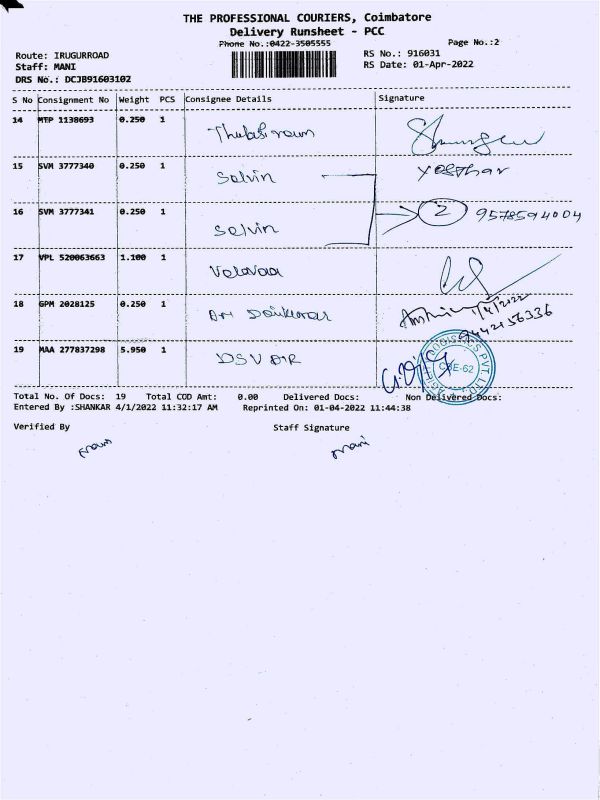 THE PROFESSIONAL COURIERS, Coimbatore
Delivery Runsheet - PCC
Phone No.:0422-3505555 Page No.:2
Route: IRUGURROAD RS No.: 916031
Staff: MANI RS Date: 01-Apr-2022
DRS No.: DCJB91603102
S No Consignment No Weight PCS Consignee Details Signature
14 MTP 1138693 0.250 1 Thulasiraum
15 SVM 3777340 0.250 1 Selvin
16 SVM 3777341 0.250 1 Selvin 2 9578594004
17 VPL 520063663 1.100 1
18 GPM 2028125 0.250 1 1/4/2022
9442156336
19 MAA 277837298 5.950 1 DSV AIR CBE-62
Total No. Of Docs: 19 Total COD Amt: 0.00 Delivered Docs: Non Delivered Docs:
Entered By :SHANKAR 4/1/2022 11:32:17 AM Reprinted On: 01-04-2022 11:44:38
Verified By Staff Signature
mani